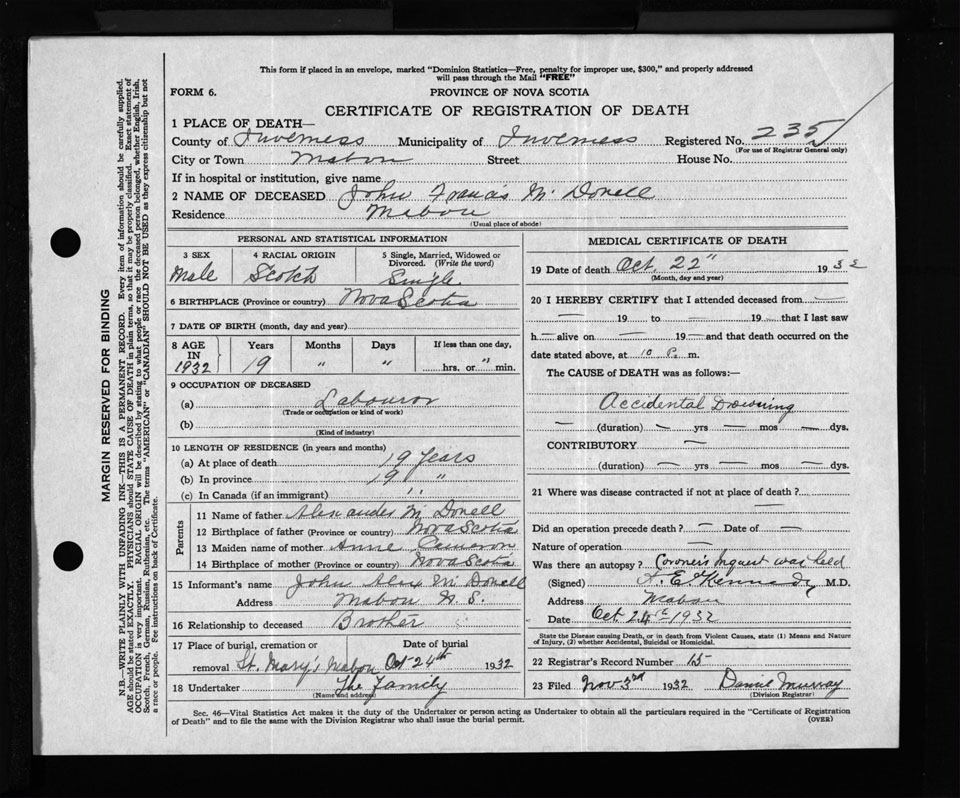 This form if placed in an envelope, marked "Dominion Statistics—Free, penalty for improper use, $300," and properly addressed
will pass through the Mail "FREE"
FORM 6.
PROVINCE OF NOVA SCOTIA
CERTIFICATE OF REGISTRATION OF DEATH
1 PLACE OF DEATH—
County of Inverness Municipality of Inverness Registered No. 235
(For use of Registrar General only)
City or Town Mabou Street House No.
If in hospital or institution, give name
2 NAME OF DECEASED John Francis McDonell
Residence Mabou
(Usual place of abode)
PERSONAL AND STATISTICAL INFORMATION
3 SEX 4 RACIAL ORIGIN 5 Single, Married, Widowed or
Divorced. (Write the word)
Male Scotch Single
6 BIRTHPLACE (Province or country) Nova Scotia
7 DATE OF BIRTH (month, day and year)
8 AGE Years Months Days If less than one day,
IN
1932 19 " " hrs. or " min.
9 OCCUPATION OF DECEASED
(a) Labouror
(Trade or occupation or kind of work)
(b)
(Kind of industry)
10 LENGTH OF RESIDENCE (in years and months)
(a) At place of death 19 years
(b) In province 19 "
(c) In Canada (if an immigrant) "
Parents
11 Name of father Alexander McDonell
12 Birthplace of father (Province or country) Nova Scotia
13 Maiden name of mother Anne Cameron
14 Birthplace of mother (Province or country) Nova Scotia
15 Informant's name John Alex McDonell
Address Mabou N.S.
16 Relationship to deceased Brother
17 Place of burial, cremation or Date of burial
removal St. Mary's Mabou Oct 24th 1932
18 Undertaker The Family
(Name and address)
MEDICAL CERTIFICATE OF DEATH
19 Date of death Oct. 22" 1932
(Month, day and year)
20 I HEREBY CERTIFY that I attended deceased from —
— 19 to — 19 — that I last saw
h— alive on — 19 — and that death occurred on the
date stated above, at 10 P. m.
The CAUSE of DEATH was as follows:—
Accidental Drowning
— (duration) — yrs — mos — dys.
CONTRIBUTORY —
(duration) — yrs — mos — dys.
21 Where was disease contracted if not at place of death?
—
Did an operation precede death? — Date of —
Nature of operation —
Was there an autopsy? Coroner's Inquest was held
(Signed) Kennedy, M.D.
Address Mabou
Date Oct. 24th 1932
State the Disease causing Death, or in death from Violent Causes, state (1) Means and Nature
of Injury, (2) whether Accidental, Suicidal or Homicidal.
22 Registrar's Record Number 15
23 Filed Nov 3rd 1932 Daniel Murray
(Division Registrar)
Sec. 46—Vital Statistics Act makes it the duty of the Undertaker or person acting as Undertaker to obtain all the particulars required in the "Certificate of Registration
of Death" and to file the same with the Division Registrar who shall issue the burial permit.
(OVER)
MARGIN RESERVED FOR BINDING
N.B.—WRITE PLAINLY WITH UNFADING INK—THIS IS A PERMANENT RECORD. Every item of information should be carefully supplied.
AGE should be stated EXACTLY. PHYSICIANS should STATE CAUSE OF DEATH in plain terms, so that it may be properly classified. Exact statement of
OCCUPATION is very important. RACIAL ORIGIN will be described by stating to what people or race the deceased person belonged, whether English, Irish,
Scotch, French, German, Russian, Ruthenian, etc. The terms "AMERICAN" or "CANADIAN" SHOULD NOT BE USED as they express citizenship but not
a race or people. See instructions on back of Certificate.